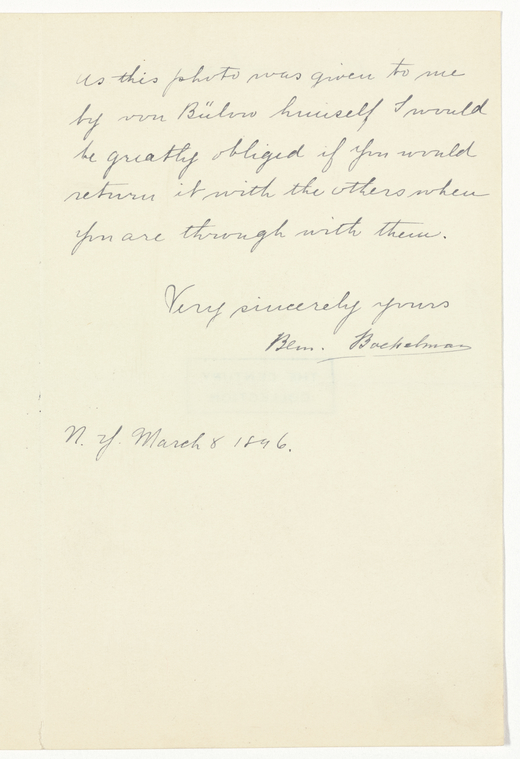 as this photo was given to me
by von Bülow himself I would
be greatly obliged if you would
return it with the others when
you are through with them.
Very sincerely yours
Bern. Boekelman
N. Y. March 8 1896.